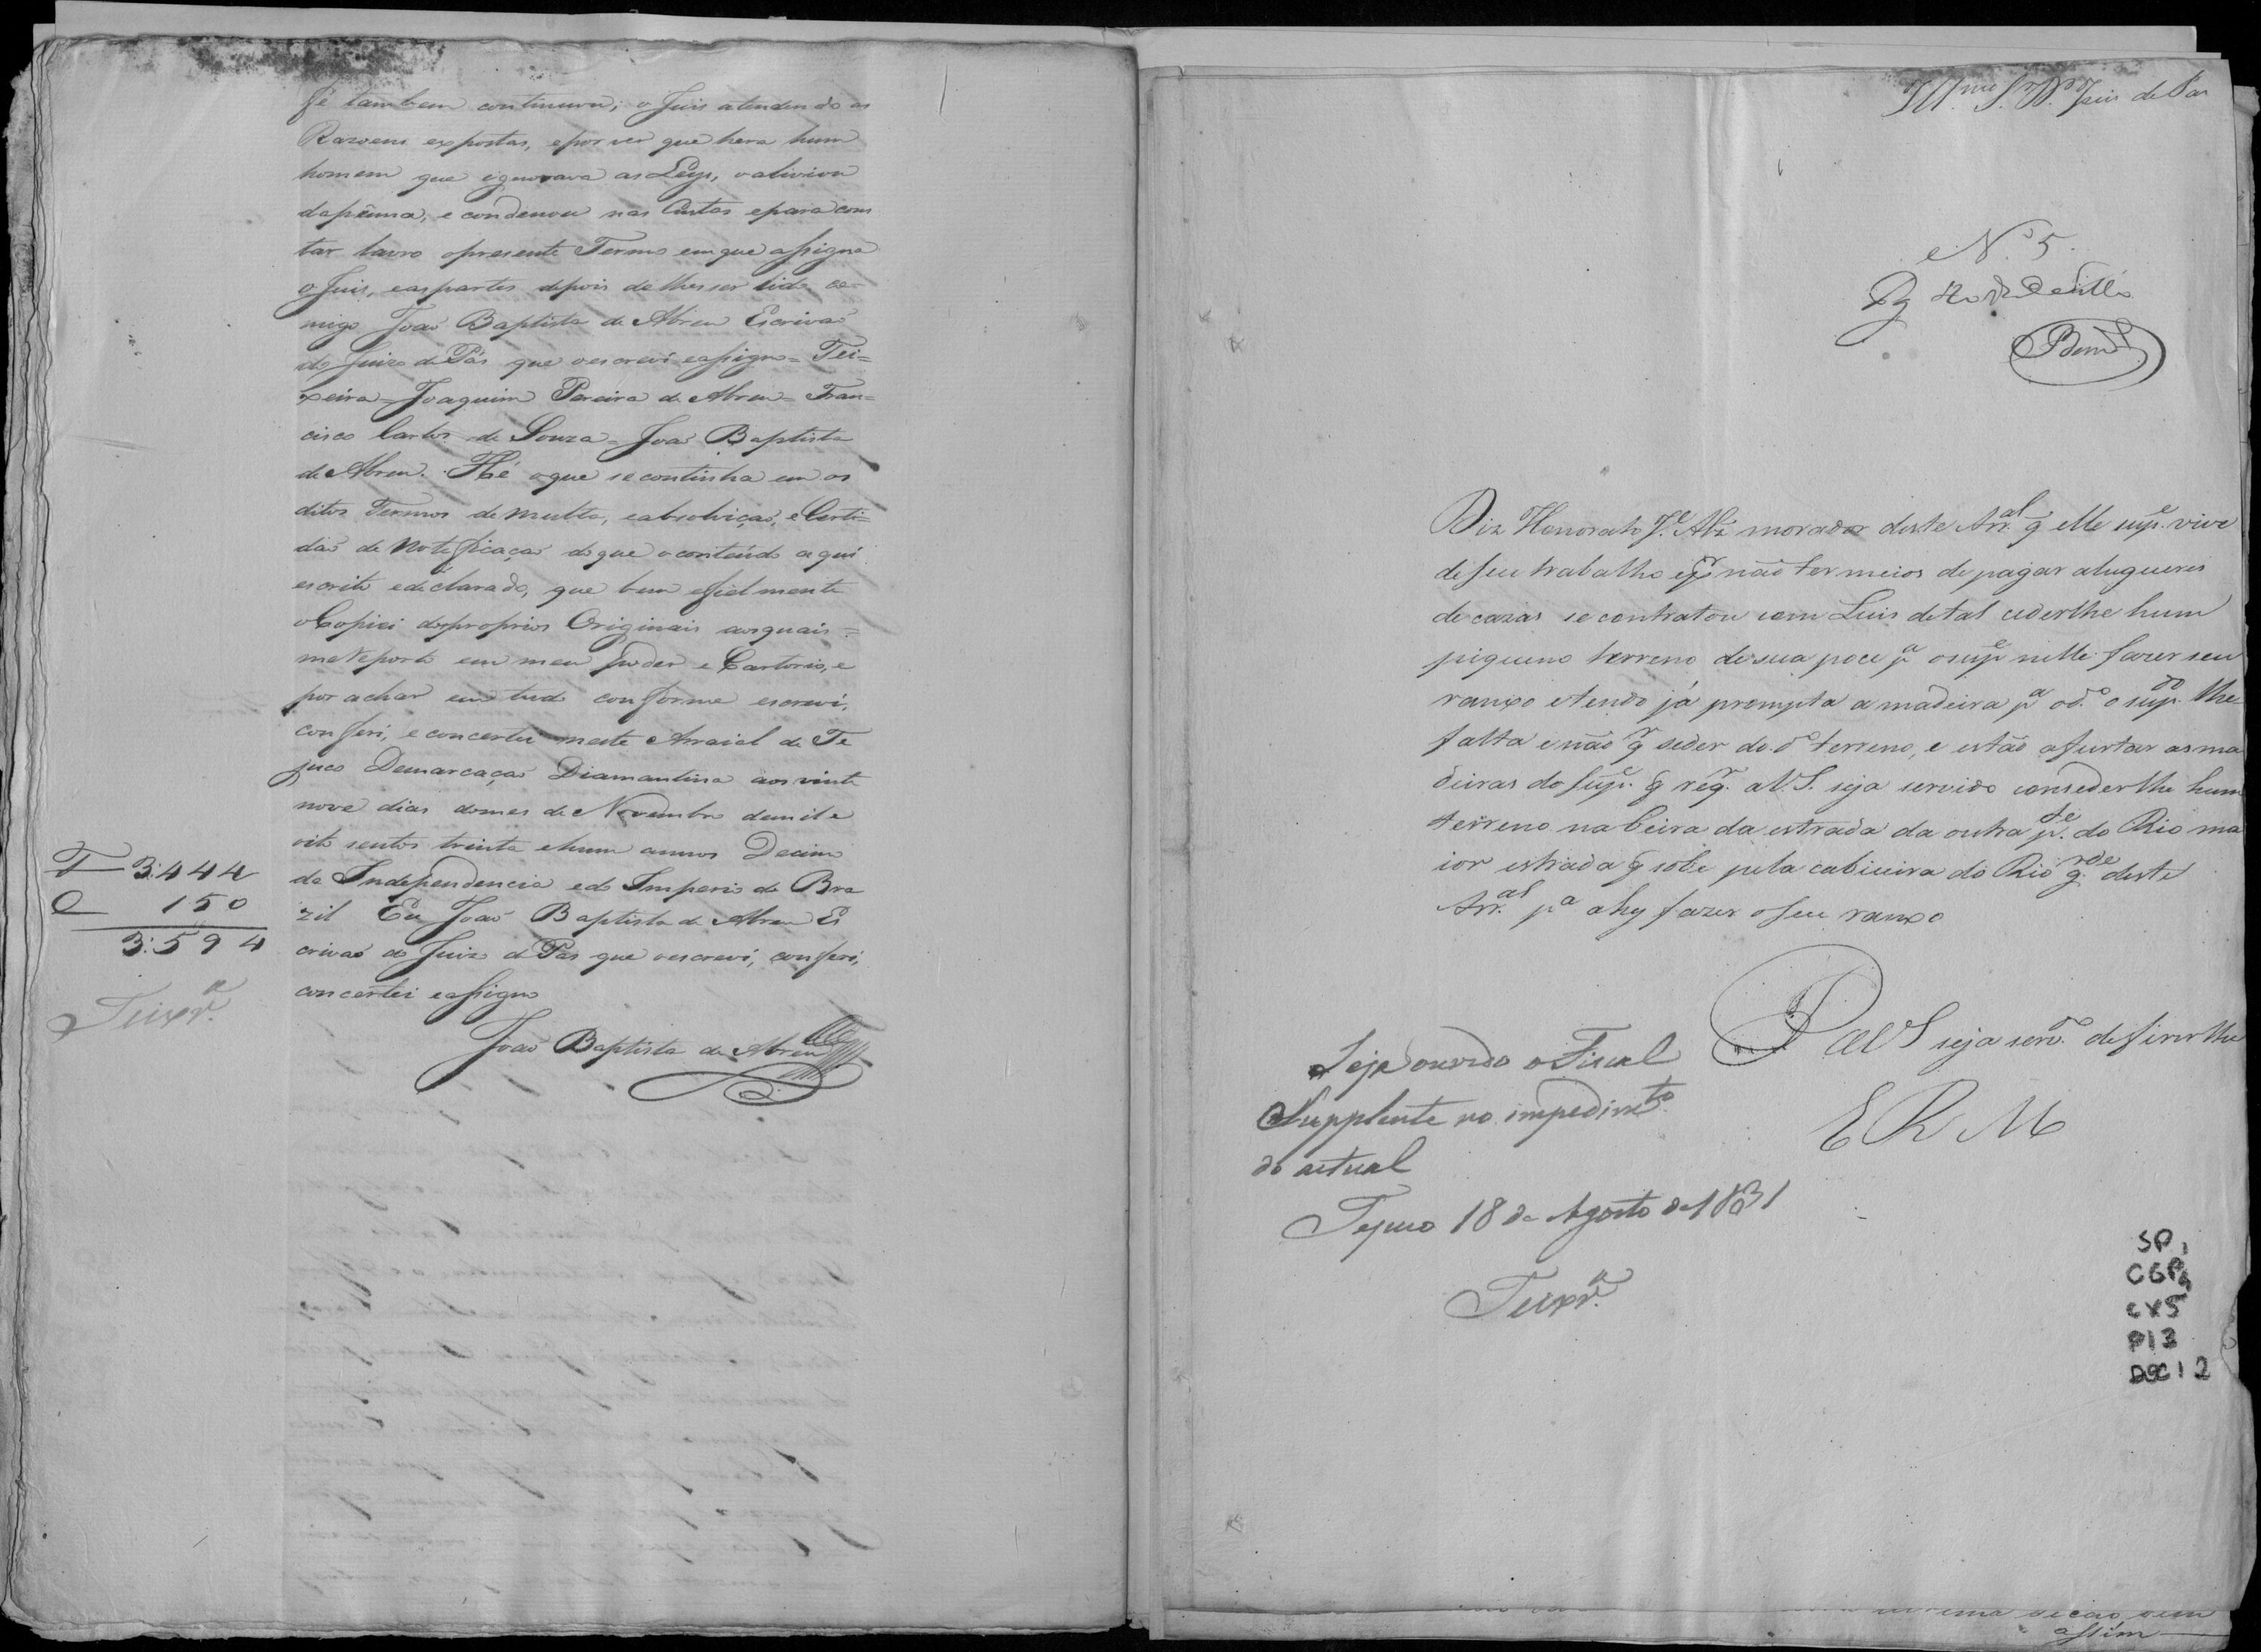 fé tambem continuou; o Juis atendendo as
Razoens expostas, epor ver que hera hum
homem que ignorava as Leys, o aliviou
da pênna, e condenou nas Custas epara cons
tar lavro opresente Termo em que assigna
o Juis, easpartes depois de lhes ser lido co-
migo Joaõ Baptista de Abreu Escrivaõ
do Juizo de Pás que oescreví eassigno = Tei=
xeira = Joaquim Pereira de Abreu = Fran=
cisco Carlos de Souza = Joaõ Baptista
de Abreu. Hé oque secontinha em os
ditos Termos de Multa, eabsolviçaõ, e Certi=
daõ de Notificaçaõ do que o conteúdo aqui
escrito edeclarado, que bem efielmente
o Copiei dos proprios Originais aos quais =
me Reporto em meu poder e Cartorio, e
por achar em tudo conforme escreví,
conferi, e concertei neste Arraial de Te
juco Demarcaçaõ Diamantina aos vinte
nove dias domes de Novembro demil e
oito sentos trinta ehum annos Decimo
da Independencia edo Imperio do Bra
zil Eu Joaõ Baptista de Abreu Es
crivaõ do Juizo de Pas que oescreví, conferi,
concertei eassigno
Joaõ Baptista de Abreu
T 3:444
C 150
3:594
Teixr.ª
Ill.mo S.r D.or Juis de Pas
N.º 5
Dem.
Diz Honorato J.e Abz morador deste Arr.al q̃ elle sup.e vive
de seu trabalho e p.r não ter meios de pagar alugueres
de cazas se contratou com Luis de tal cederlhe hum
piqueno terreno de sua poce p.a o sup.e nelle fazer seu
ranxo e tendo já prompta a madeira p.a o d.o o sup.do lhe
falta e não q.r seder do d.o terreno, e estão afurtar as ma
deiras do sup.e q̃ req.r a V.S. seja servido consederlhe hum
terreno na beira da estrada da outra p.te do Rio ma
ior estrada q̃ sobe pela cabiceira do Rio g.rde deste
Arr.al p.a ahy fazer o seu ranxo
P a V S seja serv.o defirirlhe
E R M
Seja ouvido o Fiscal
Supplente no impedim.to
do actual
Tejuco 18 de Agosto de 1831
Teixr.ª
SP,
CGP,
CX5
P13
DOC12
assim